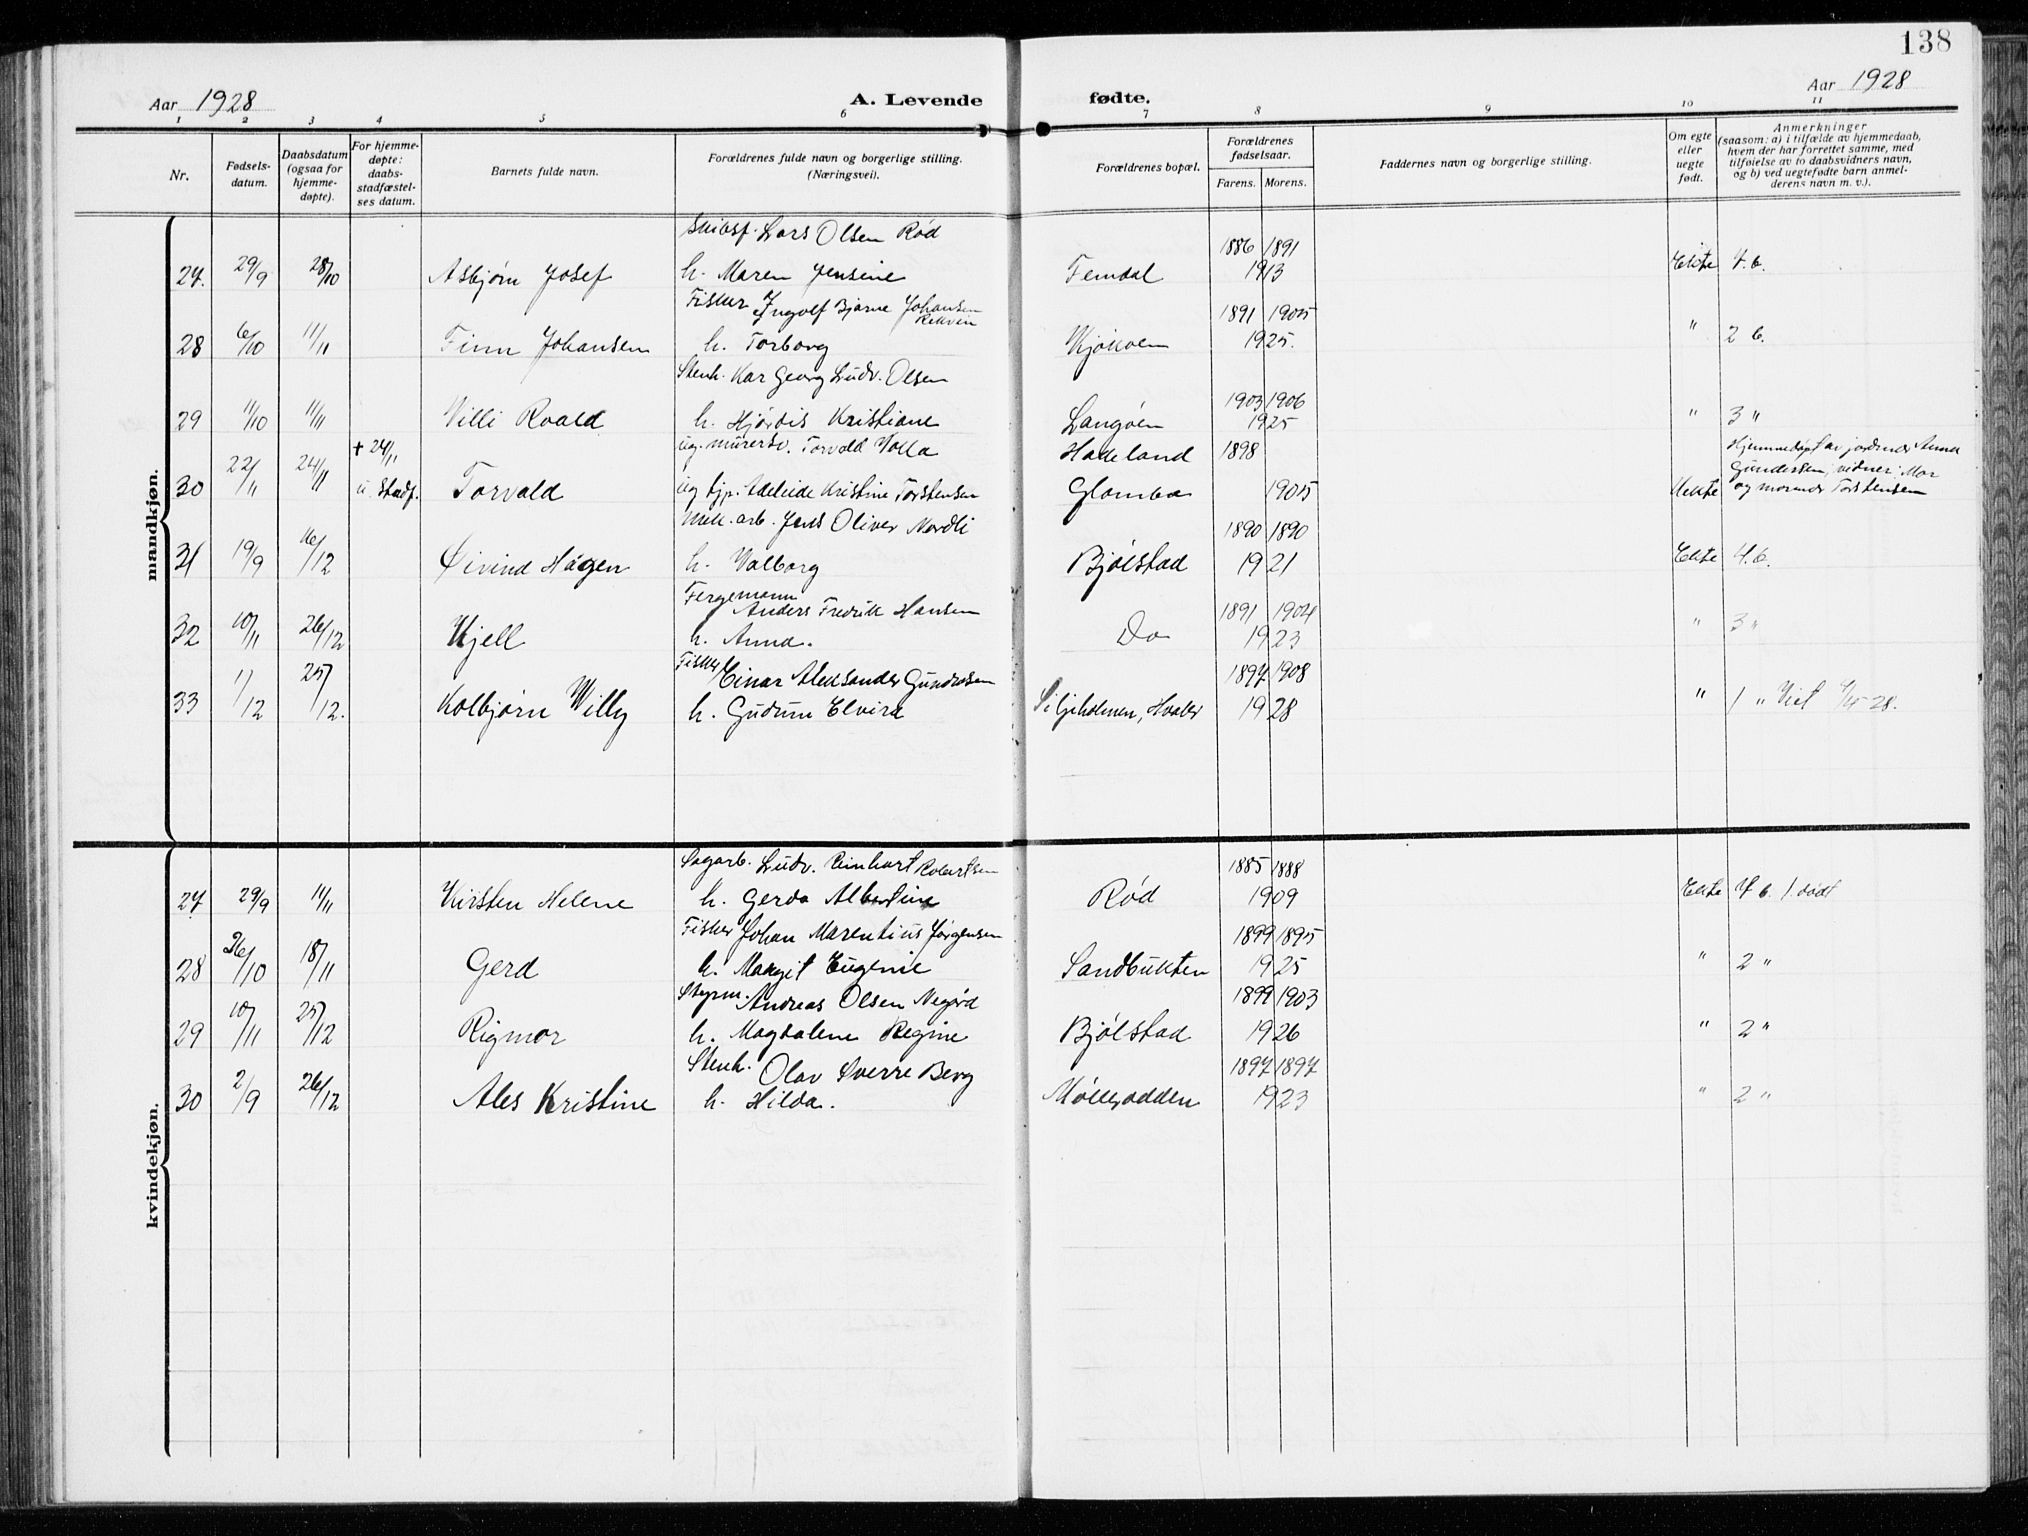 138
Aar 1928 A. Levende fødte. Aar 1928
1 2 3 4 5 6 7 8 9 10 11
Nr. Fødsels-datum. Daabsdatum (ogsaa for hjemme-døpte). For hjemme-døpte: daabs-stadfæstel-ses datum. Barnets fulde navn. Forældrenes fulde navn og borgerlige stilling. (Næringsvei). Forældrenes bopæl. Forældrenes fødselsaar. Farens. Morens. Faddernes navn og borgerlige stilling. Om egte eller uegte født. Anmerkninger (saasom: a) i tilfælde av hjemmedaab, hvem der har forrettet samme, med tilføielse av to daabsvidners navn, og b) ved uegtefødte barn anmel-derens navn m. v.).
mandkjøn.
Skibsf. Lars Olsen Rød 1886 1891
27. 29/9 28/10 Asbjørn Josef h. Maren Jensine Femdal 1913 Ekte 4. b.
Fisker Ingolf Bjarne Johansen Rekvin 1891 1905
28 6/10 11/11 Finn Johansen h. Torborg Kjøkøen 1925. " 2 b.
Stenh. Kar Georg Ludv. Olsen 1903 1906
29 11/10 11/11 Villi Roald h. Hjørdis Kristiane Langøen 1925 " 3 "
† 24/11 ug. murersv. Torvald Volla Hadeland 1898 Hjemmedøpt av jordmor Anna
30 22/11 24/11 u. Stadf. Torvald ug tjp. Adeleide Kristine Torstensen Glomba 1905 Uekte Gundersen, vidner: Mor og mormor Torstensen
Mek. arb. Jens Oliver Nordli 1890 1890
31 19/9 16/12 Øivind Hagen h. Valborg Bjølstad 1921 Ekte 4. b.
Fergemann Anders Fredrik Hansen 1891 1904
32 10/11 26/12 Kjell h. Anna. Do 1923 " 3 "
Fisker Einar Aleksander Gundersen 1897 1908
33 1/12 25/12. Kolbjørn Willy h. Gudrun Elvira Siljeholmen, Hvaler 1928 " 1 "
kvindekjøn.
Sagarb. Ludv. Reinhart Robertsen 1885 1888
27 29/9 11/11 Kirsten Helene h. Gerda Albertine Rød 1909 Ekte 7 b. 1. dødt
Fisker Johan Marentius Jørgensen 1899 1895
28 26/10 18/11 Gerd h. Margit Eugenie Sandbukten 1925 " 2 "
Styrm. Andreas Olsen Negård 1899 1903
29 10/11 25/12 Rigmor h. Magdalene Regine Bjølstad 1926 " 2 "
Stenh. Olav Sverre Berg 1897 1897
30 2/9 26/12 Ales Kristine h. Hilda. Møllerodden 1923 " 2 "